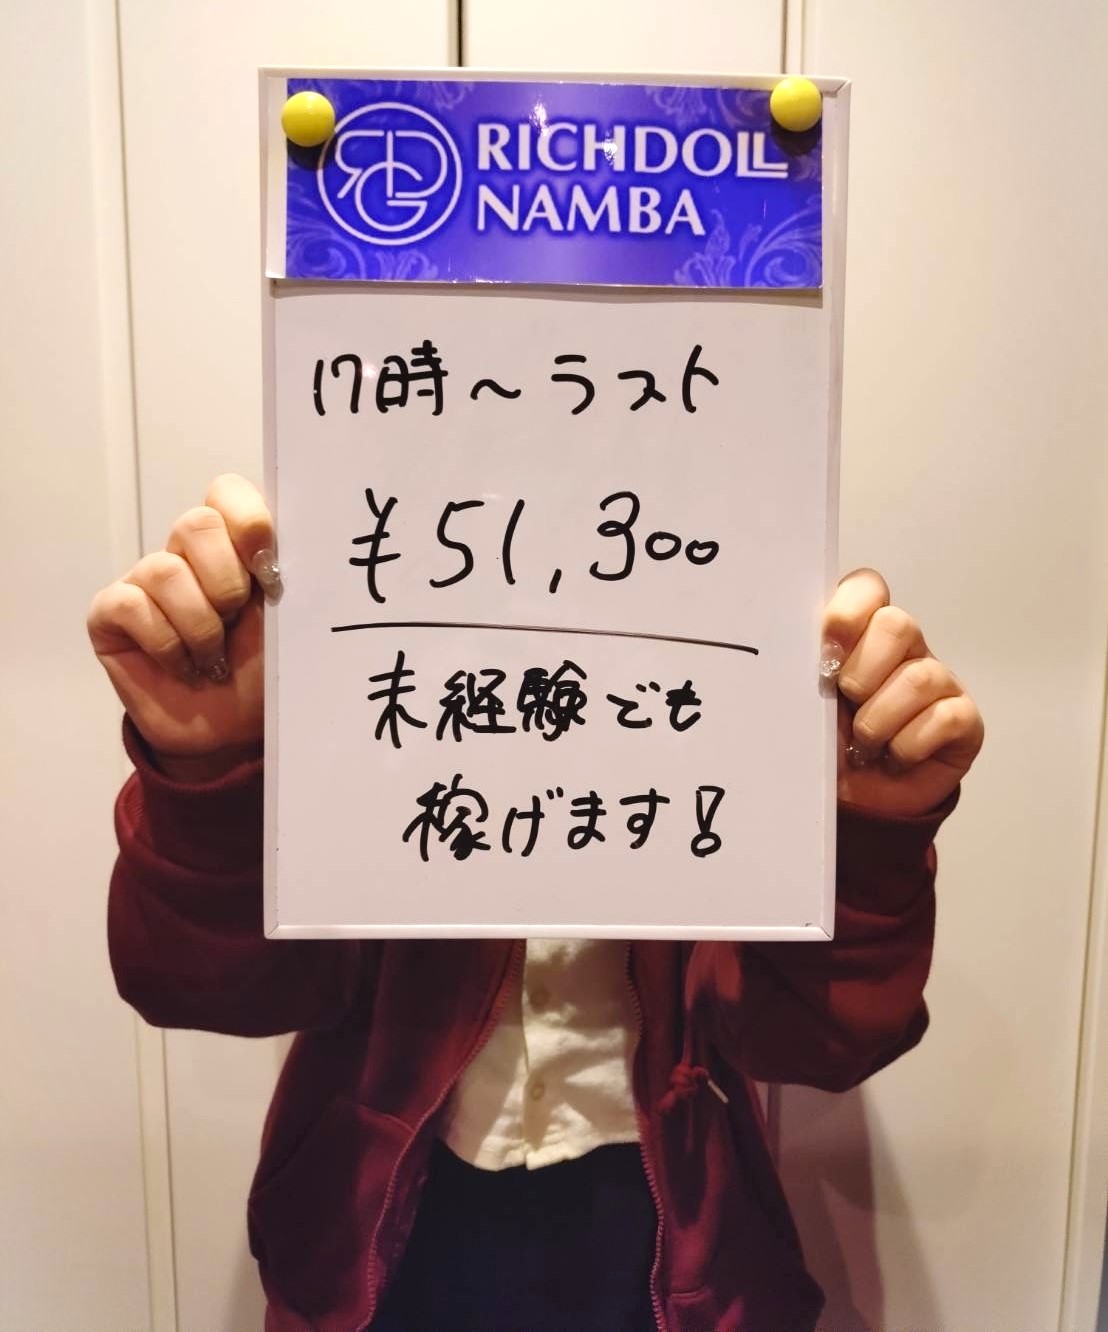 RICHDOLL
NAMBA
17時～ラスト
¥51,300
未経験でも
稼げます!